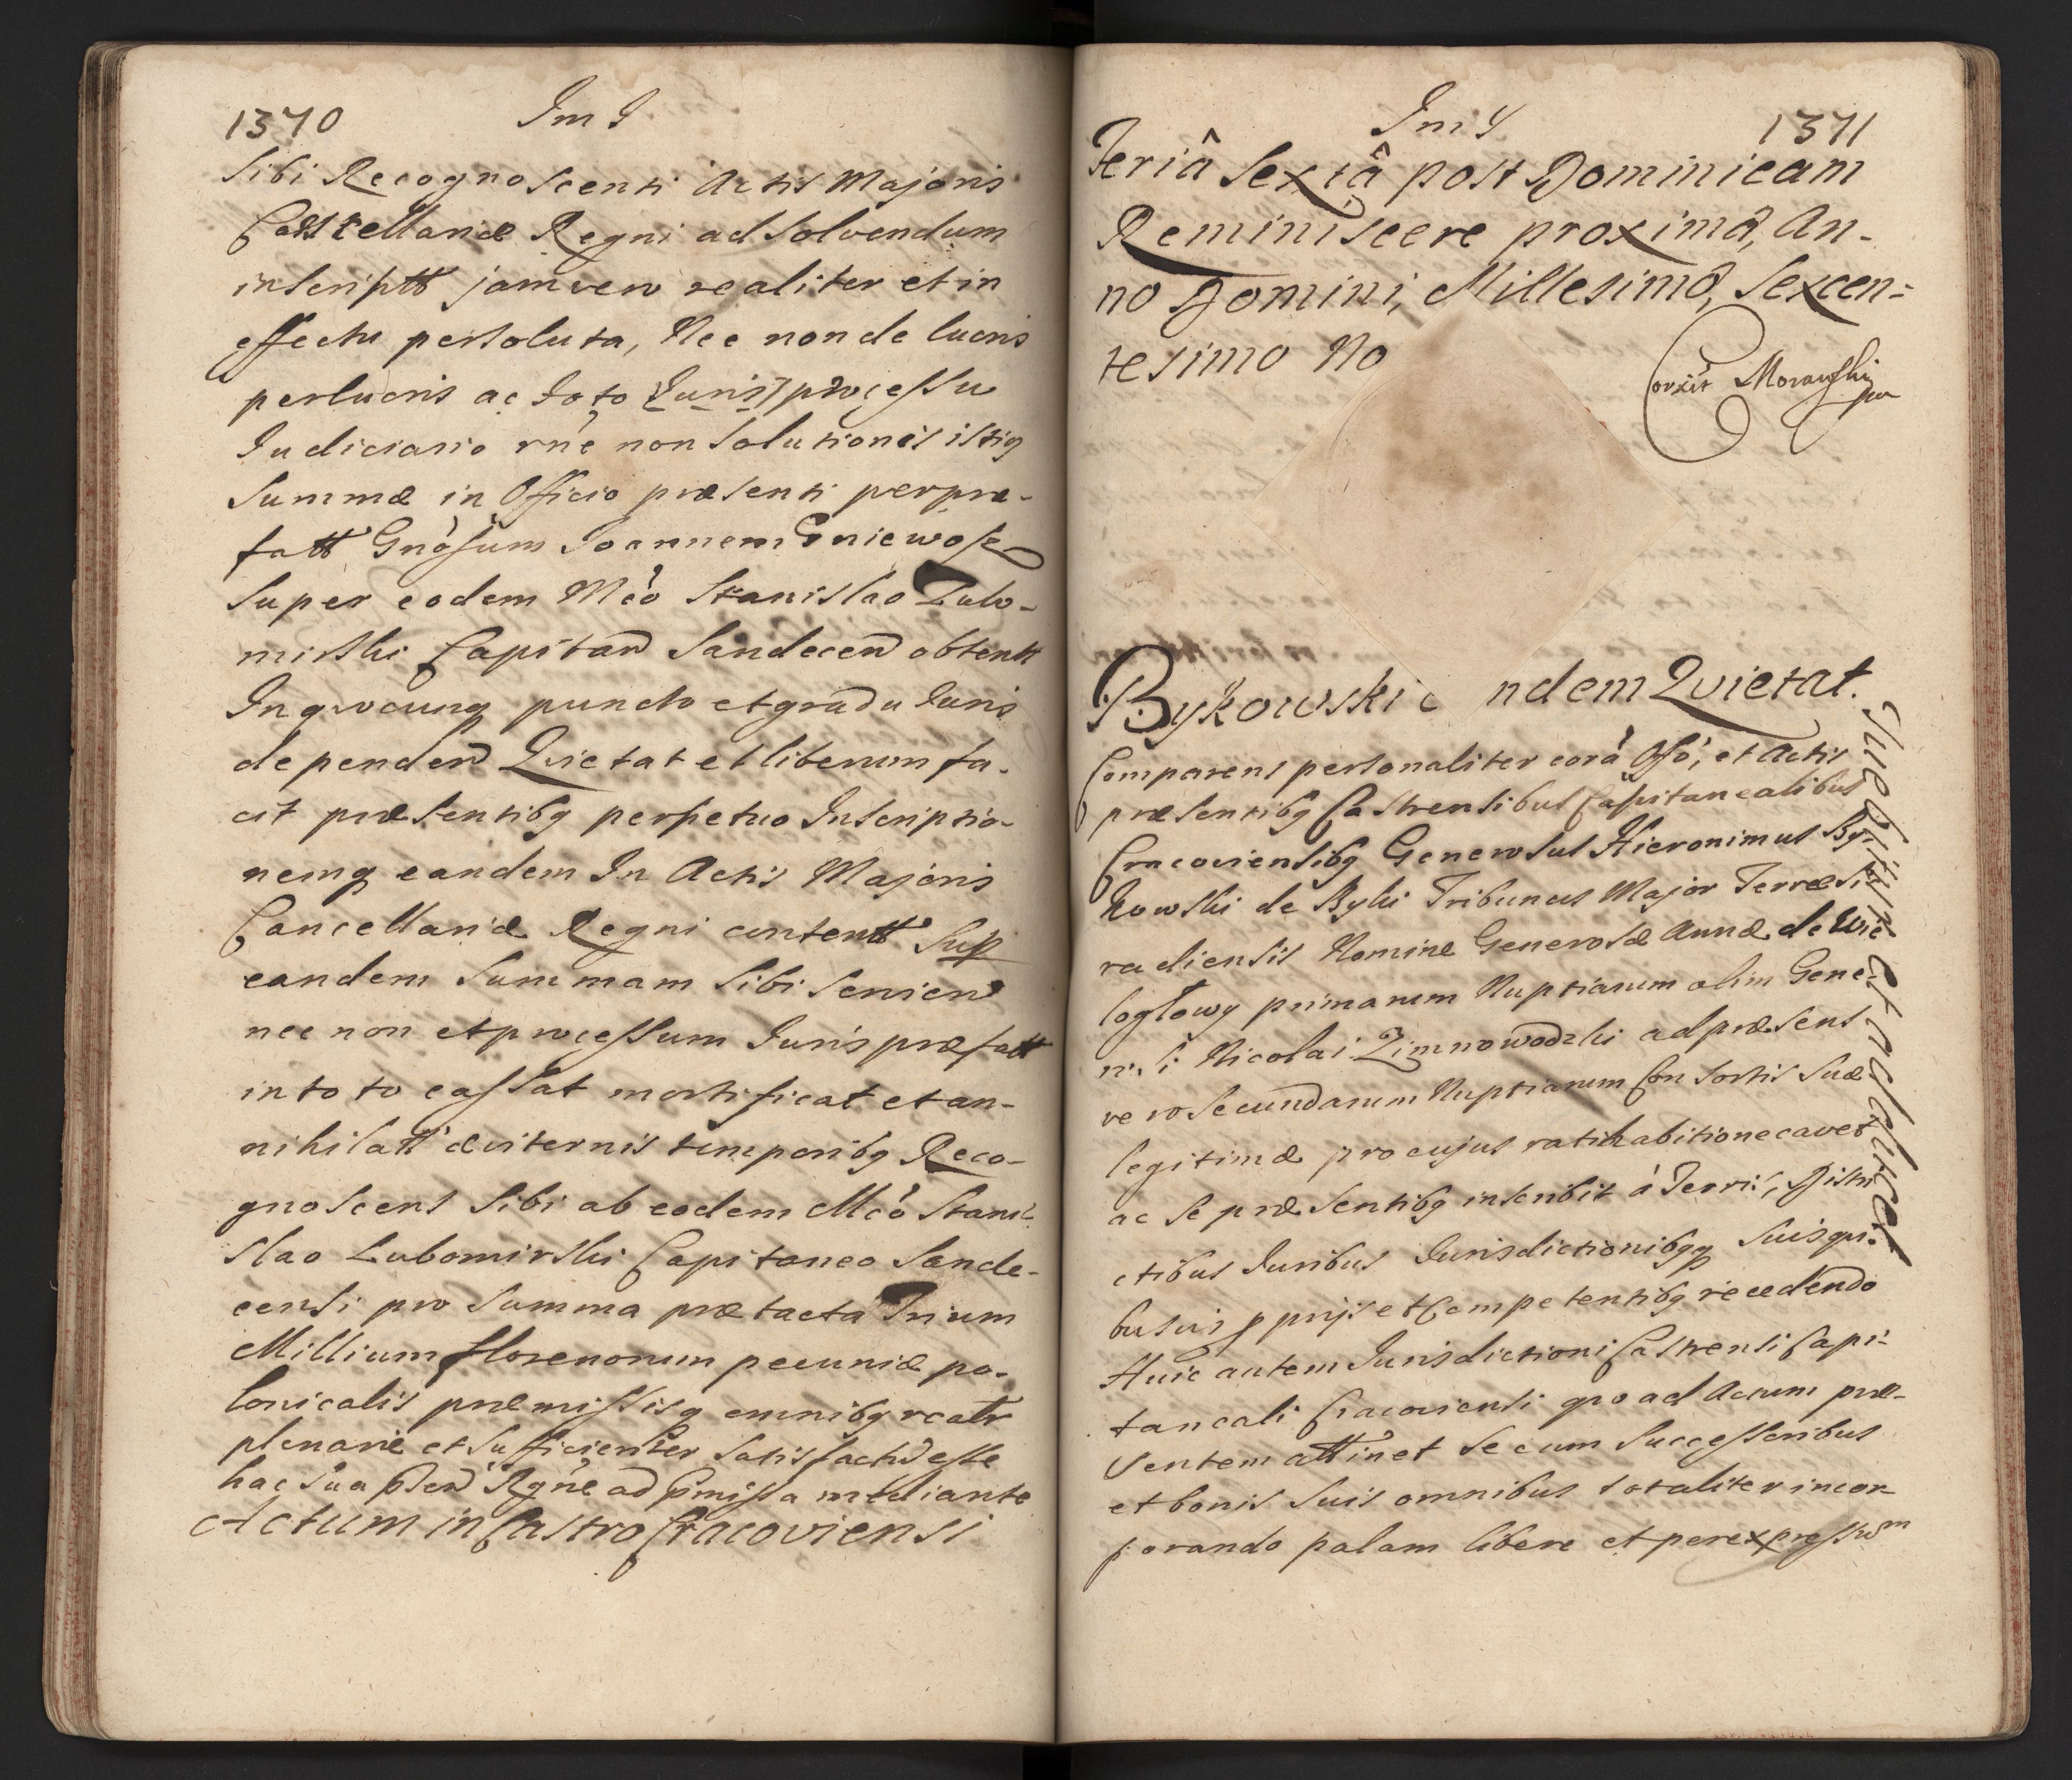 1370 Im J
sibi Recognoscenti Actis Majoris
Cancellariæ Regni ad solvendum
inscriptt jam vero realiter et in
effectu persoluta, Nec non de lucris
perlucris ac toto Juris processu
Judiciario rne non solutionis istig
Summæ in Officio præsenti per præ-
fatt Gnosum Joannem Gniewosz
super eodem Mco Stanislao Lubo-
mirski Capitan Sandecen obtentt
In quocunq puncto et gradu Juris
dependen Quietat et liberum fa-
cit præsentibg perpetuo Inscriptio-
nemq eandem In Actis Majoris
Cancellariæ Regni contentt Sup
eandem Summam sibi servien
nec non et processum Juris præfatt
in toto cassat mortificat et an-
nihilatt æviternis temporibg Reco-
gnoscens sibi ab eodem Mco Stani-
slao Lubomirski Capitaneo Sande-
censi pro Summa prætacta Trium
Millium florenorum pecuniæ po-
lonicalis præmissisq omnibg realr
plenarie et sufficienter satisfactu esse
hac sua psen Rgne ad pmissa mediante
Actum in Castro Cracoviensi
Im J 1371
Feriâ Sextâ post Dominicam
Reminiscere proximâ, An-
no Domini, Millesimô, Sexcen-
tesimo No
Corxit Morawski
Bykowski c ndem Quietat.
Comparens personaliter corà Offo, et Actis
præsentibg Castrensibus Capitanealibus
Cracoviensibg Generosus Hieronimus By-
kowski de Byki Tribunus Major Terræ Si-
radiensis Nomine Generosæ Annæ de Wie
logłowy primarum Nuptiarum olim Gene-
r. i Nicolai Zimnowodzki ad præsens
vero secundarum Nuptiarum Consortis suæ
legitimæ pro cujus ratihabitione cavet
ac se præsentibg inscribit à Terris, Distri
ctibus Juribus Jurisdictionibgq suis qui-
busvis pprijs et Competentibg recedendo
Huic autem Jurisdictioni Castrensi Capi-
taneali Cracoviensi quo ad Actum præ-
sentem attinet se cum Successoribus
et bonis suis omnibus totaliter incor-
porando palam libere et per expressum
Suscipitur et adducet